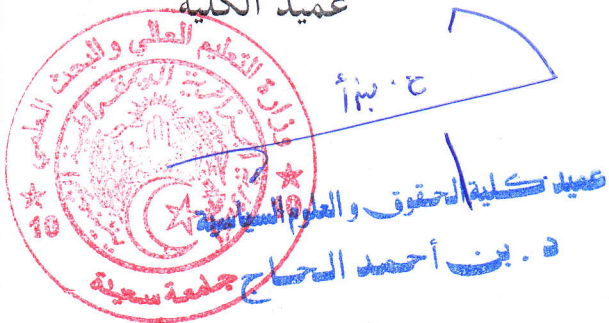 عميد الكلية
وزارة التعليم العالي والبحث العلمي
10
جامعة سعيدة
عميد كلية الحقوق والعلوم السياسية
د . بن أحمد الحاج